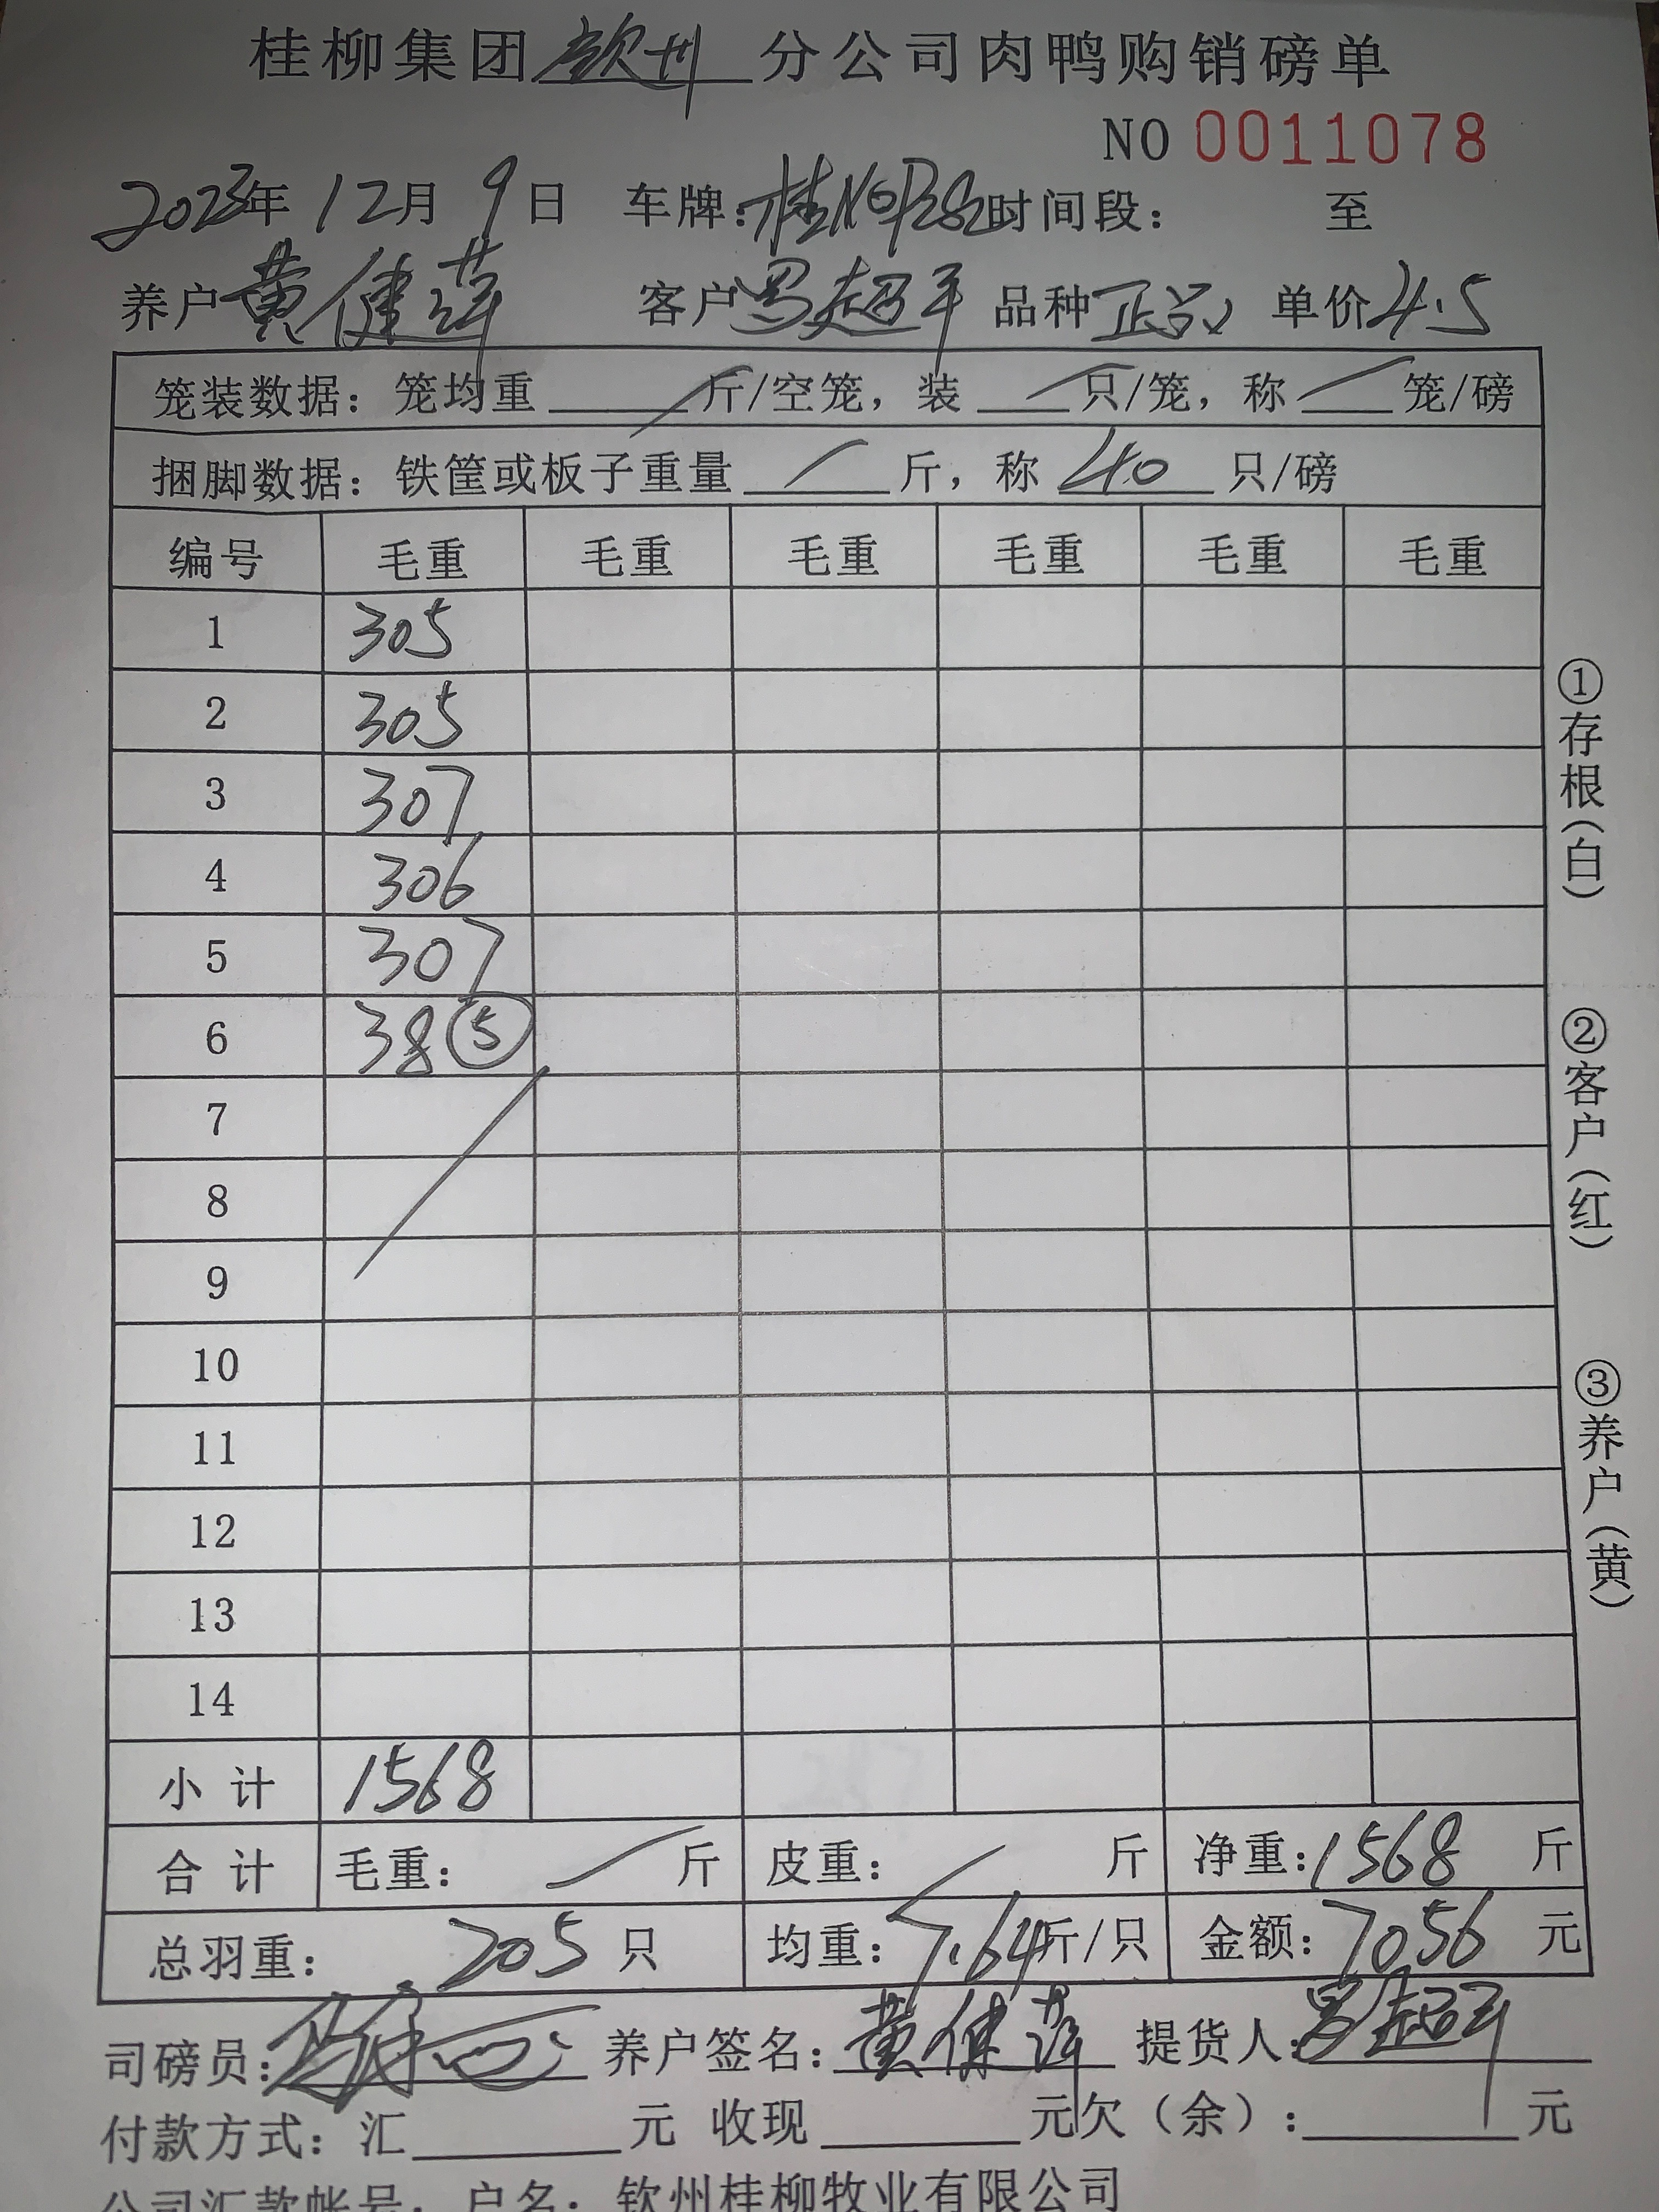 桂柳集团钦州分公司肉鸭购销磅单
NO 0011078
2023年12月9日 车牌: 时间段: 至
养户黄健萍 客户罗超平 品种正品 单价4.5
笼装数据: 笼均重 / 斤/空笼, 装 / 只/笼, 称 / 笼/磅
捆脚数据: 铁筐或板子重量 / 斤, 称 40 只/磅
编号 毛重 毛重 毛重 毛重 毛重 毛重
1 305
2 305
3 307
4 306
5 307
6 38⑤
7
8
9
10
11
12
13
14
小计 1568
合计 毛重: / 斤 皮重: / 斤 净重:1568 斤
总羽重: 205 只 均重:7.64斤/只 金额:7056 元
司磅员: 养户签名:黄健萍 提货人:罗超平
付款方式: 汇 元 收现 元欠(余): 元
公司汇款帐号: 户名: 钦州桂柳牧业有限公司
①存根(白)
②客户(红)
③养户(黄)